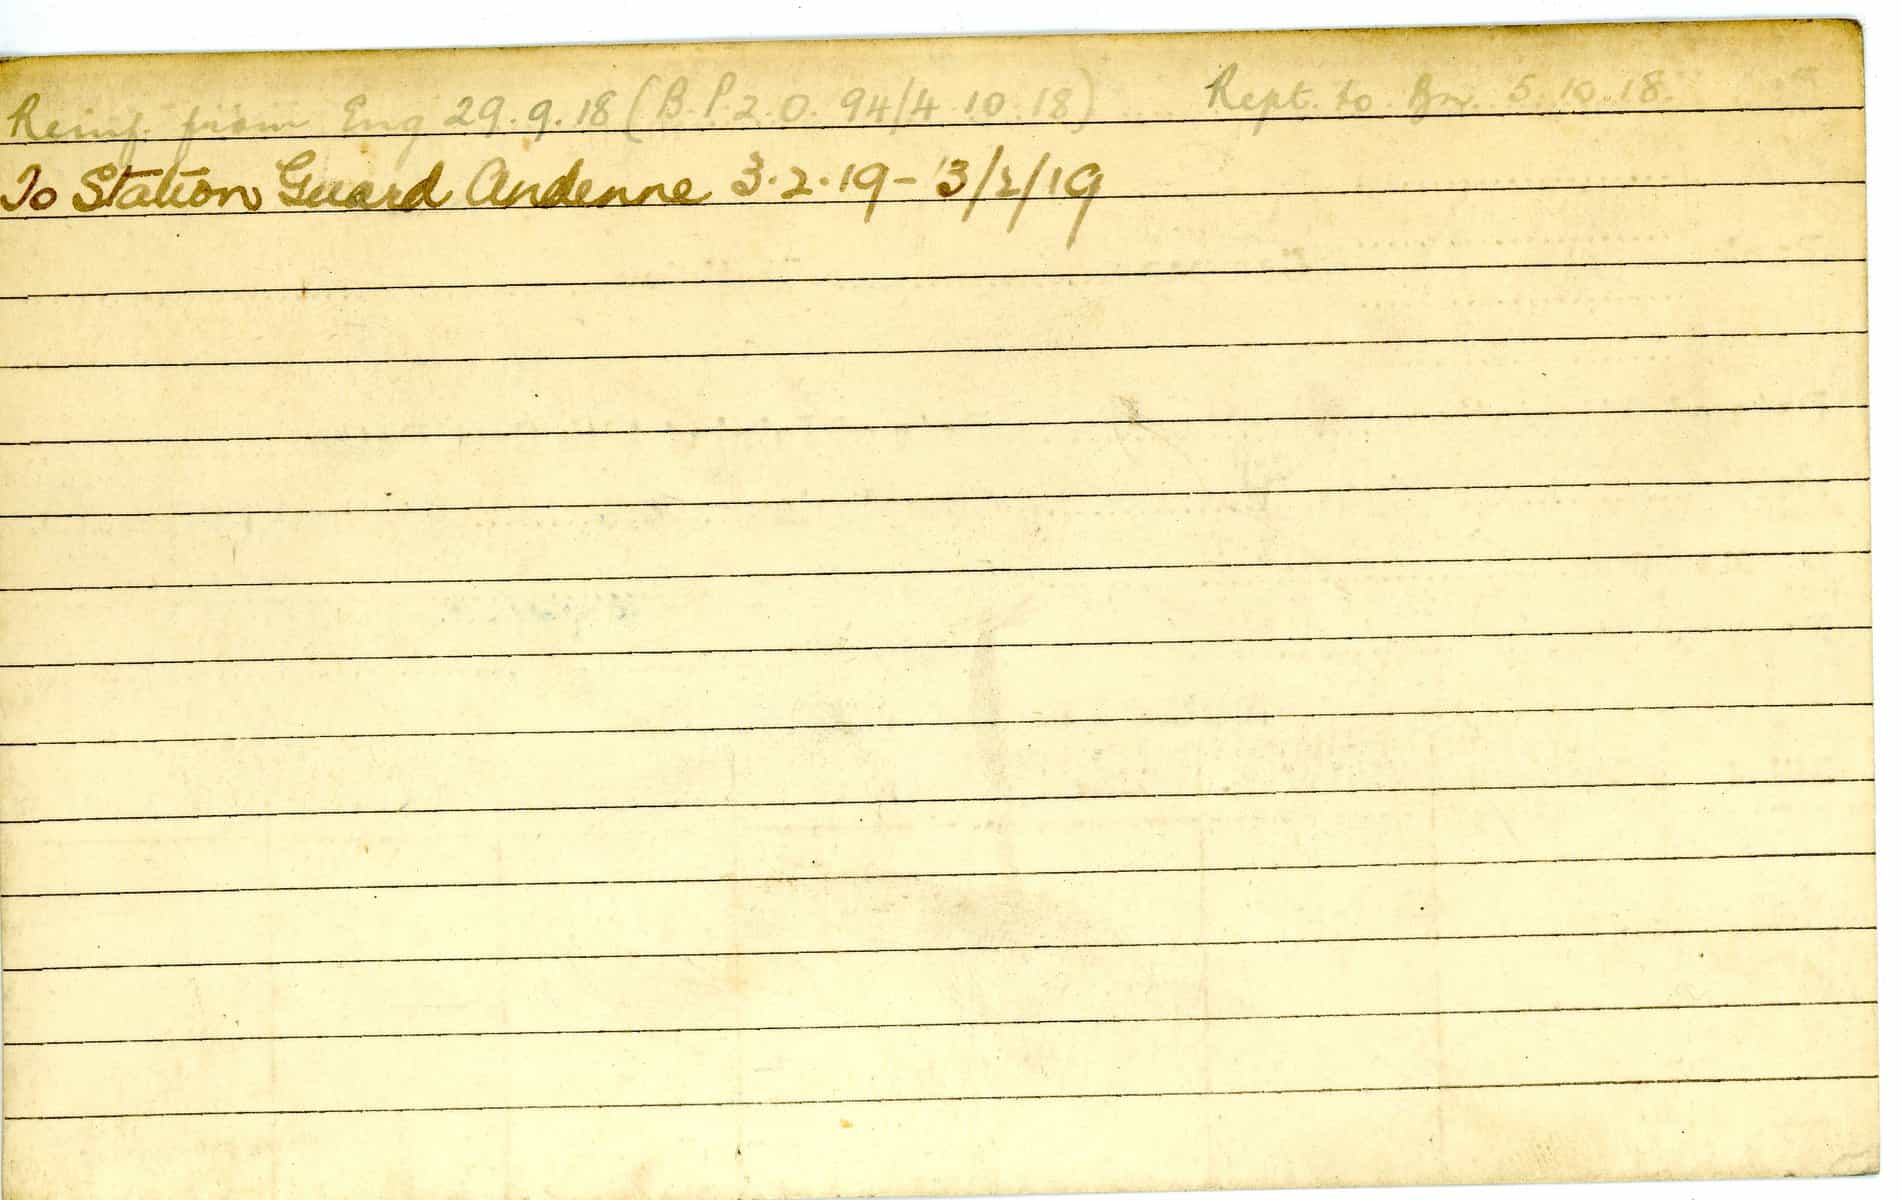 Reinf. from Eng 29.9.18 (B.P.2.O. 94/4.10.18) Rept. to Bn. 5.10.18.
To Station Guard Andenne 3.2.19 - 13/2/19